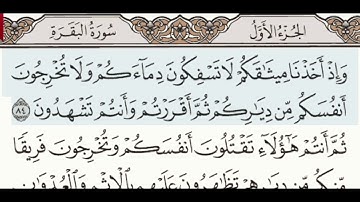 الجزء الأول
سورة البقرة
وَإِذْ أَخَذْنَا مِيثَٰقَكُمْ لَا تَسْفِكُونَ دِمَآءَكُمْ وَلَا تُخْرِجُونَ
أَنفُسَكُم مِّن دِيَٰرِكُمْ ثُمَّ أَقْرَرْتُمْ وَأَنتُمْ تَشْهَدُونَ ٨٤
ثُمَّ أَنتُمْ هَٰٓؤُلَآءِ تَقْتُلُونَ أَنفُسَكُمْ وَتُخْرِجُونَ فَرِيقًا
مِّنكُم مِّن دِيَٰرِهِمْ تَظَٰهَرُونَ عَلَيْهِم بِٱلْإِثْمِ وَٱلْعُدْوَٰنِ